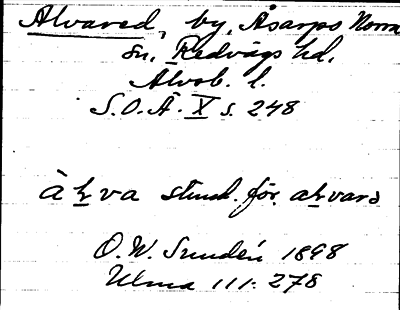 Alvared, by, Åsarps Norra
sn, Redvägs hd,
Älvsb. l.
S.O.Ä. X s. 248
àḻva stund. för. aḻvard
O.W. Sundén 1898
Ulma 111:278